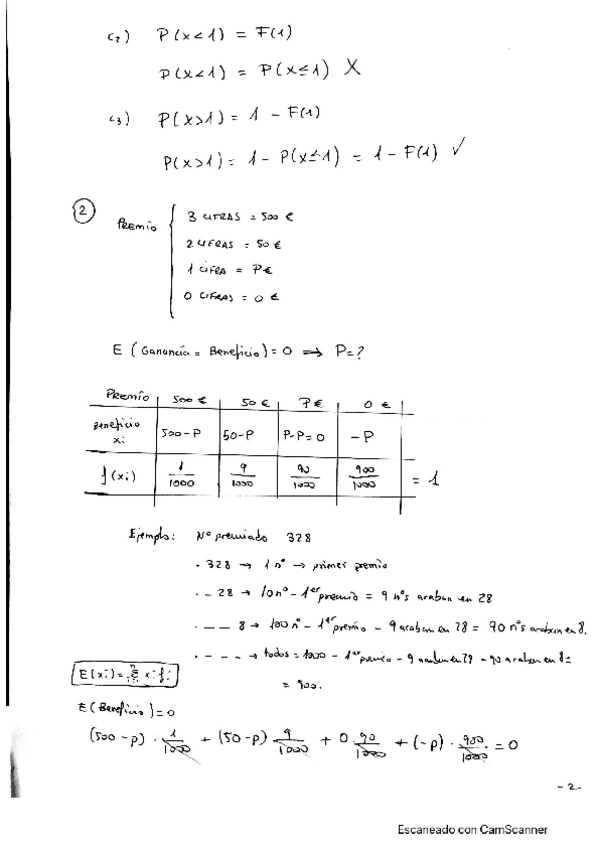 c2) P(x<1) = F(1)
P(x<1) = P(x≤1) X
c3) P(x>1) = 1 - F(1)
P(x>1) = 1 - P(x≤1) = 1 - F(1) ✓
2
PREMIO
3 CIFRAS = 500 €
2 CIFRAS = 50 €
1 CIFRA = P €
0 CIFRAS = 0 €
E (Ganancia = Beneficio) = 0 ⟹ P = ?
PREMIO 500 € 50 € P € 0 €
Beneficio xi 500-P 50-P P-P=0 -P
f(xi) 1/1000 9/1000 90/1000 900/1000 = 1
Ejemplo: Nº premiado 328
. 328 → 1 nº → primer premio
. - 28 → 10 nº - 1er premio = 9 nºs acaban en 28
. - - 8 → 100 nº - 1er premio - 9 acaban en 28 = 90 nºs acaban en 8.
. - - - → todos = 1000 - 1er premio - 9 acaban en 28 - 90 acaban en 8 =
= 900.
E(xi) = Σ xi fi
E(Beneficio) = 0
(500-p) · 1/1000 + (50-p) 9/1000 + 0 · 90/1000 + (-p) · 900/1000 = 0
- 2 -
Escaneado con CamScanner